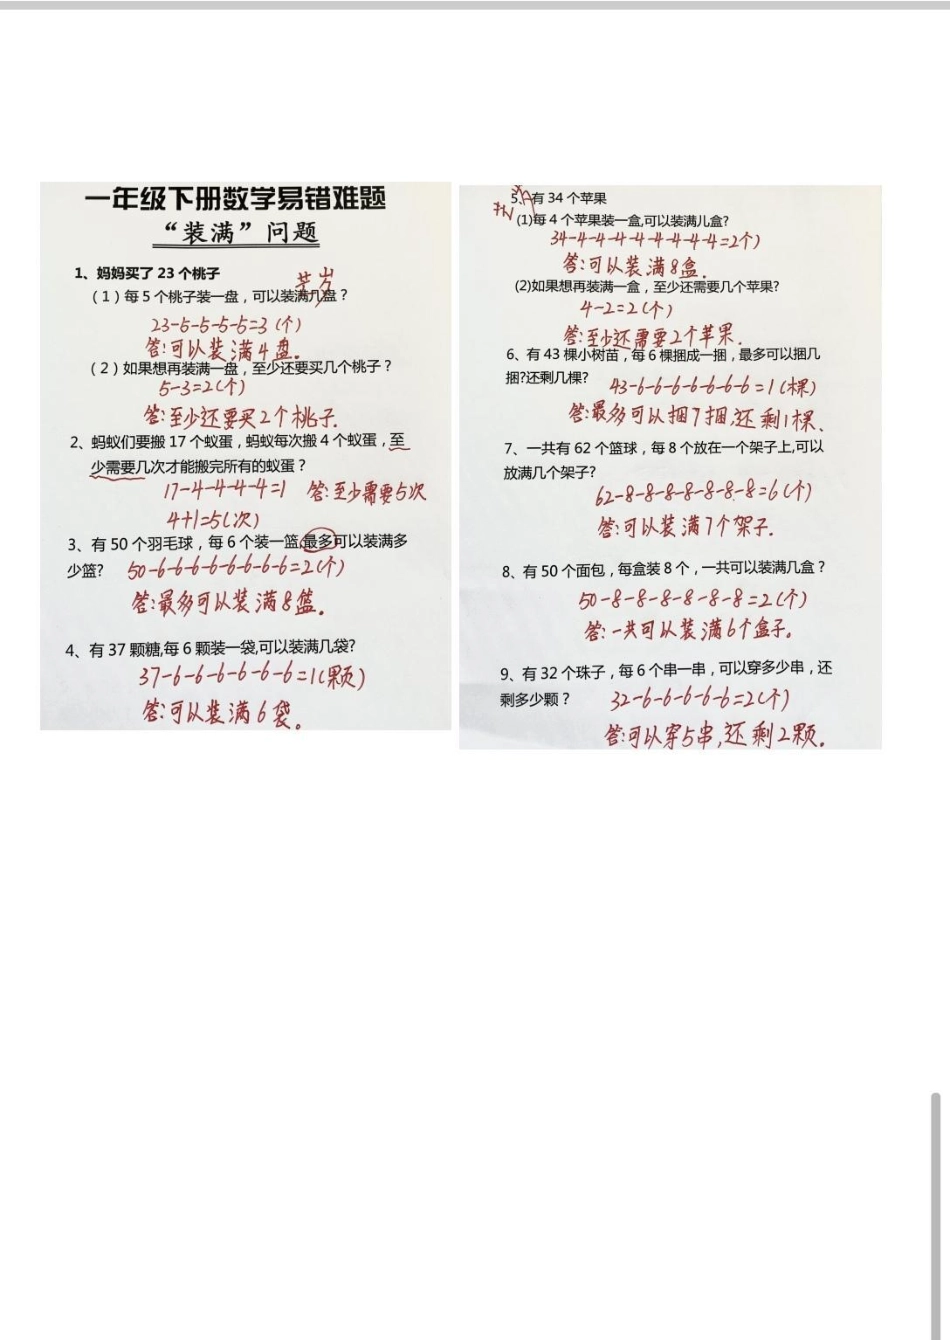 一年级下册数学易错难题
“装满”问题
1、妈妈买了 23 个桃子
（1）每 5 个桃子装一盘，可以装满几盘？
23-5-5-5-5=3（个）
答:可以装满4盘.
（2）如果想再装满一盘，至少还要买几个桃子？
5-3=2(个)
答:至少还要买2个桃子.
2、蚂蚁们要搬 17 个蚁蛋，蚂蚁每次搬 4 个蚁蛋，至
少需要几次才能搬完所有的蚁蛋？
17-4-4-4-4=1 答:至少需要5次
4+1=5(次)
3、有 50 个羽毛球，每 6 个装一篮,最多可以装满多
少篮? 50-6-6-6-6-6-6-6-6=2(个)
答:最多可以装满8篮.
4、有 37 颗糖,每 6 颗装一袋,可以装满几袋?
37-6-6-6-6-6-6=1(颗)
答:可以装满6袋。
5、有 34 个苹果
(1)每 4 个苹果装一盒,可以装满儿盒?
34-4-4-4-4-4-4-4-4=2个)
答:可以装满8盒.
(2)如果想再装满一盒，至少还需要几个苹果?
4-2=2(个)
答:至少还需要2个苹果.
6、有 43 棵小树苗，每 6 棵捆成一捆，最多可以捆几
捆?还剩几棵? 43-6-6-6-6-6-6-6=1(棵)
答:最多可以捆7捆,还剩1棵、
7、一共有 62 个篮球，每 8 个放在一个架子上,可以
放满几个架子?
62-8-8-8-8-8-8-8=6(个)
答:可以装满7个架子.
8、有 50 个面包，每盒装 8 个，一共可以装满几盒？
50-8-8-8-8-8-8=2(个)
答:一共可以装满6个盒子。
9、有 32 个珠子，每 6 个串一串，可以穿多少串，还
剩多少颗？ 32-6-6-6-6-6=2(个)
答:可以穿5串,还剩2颗.